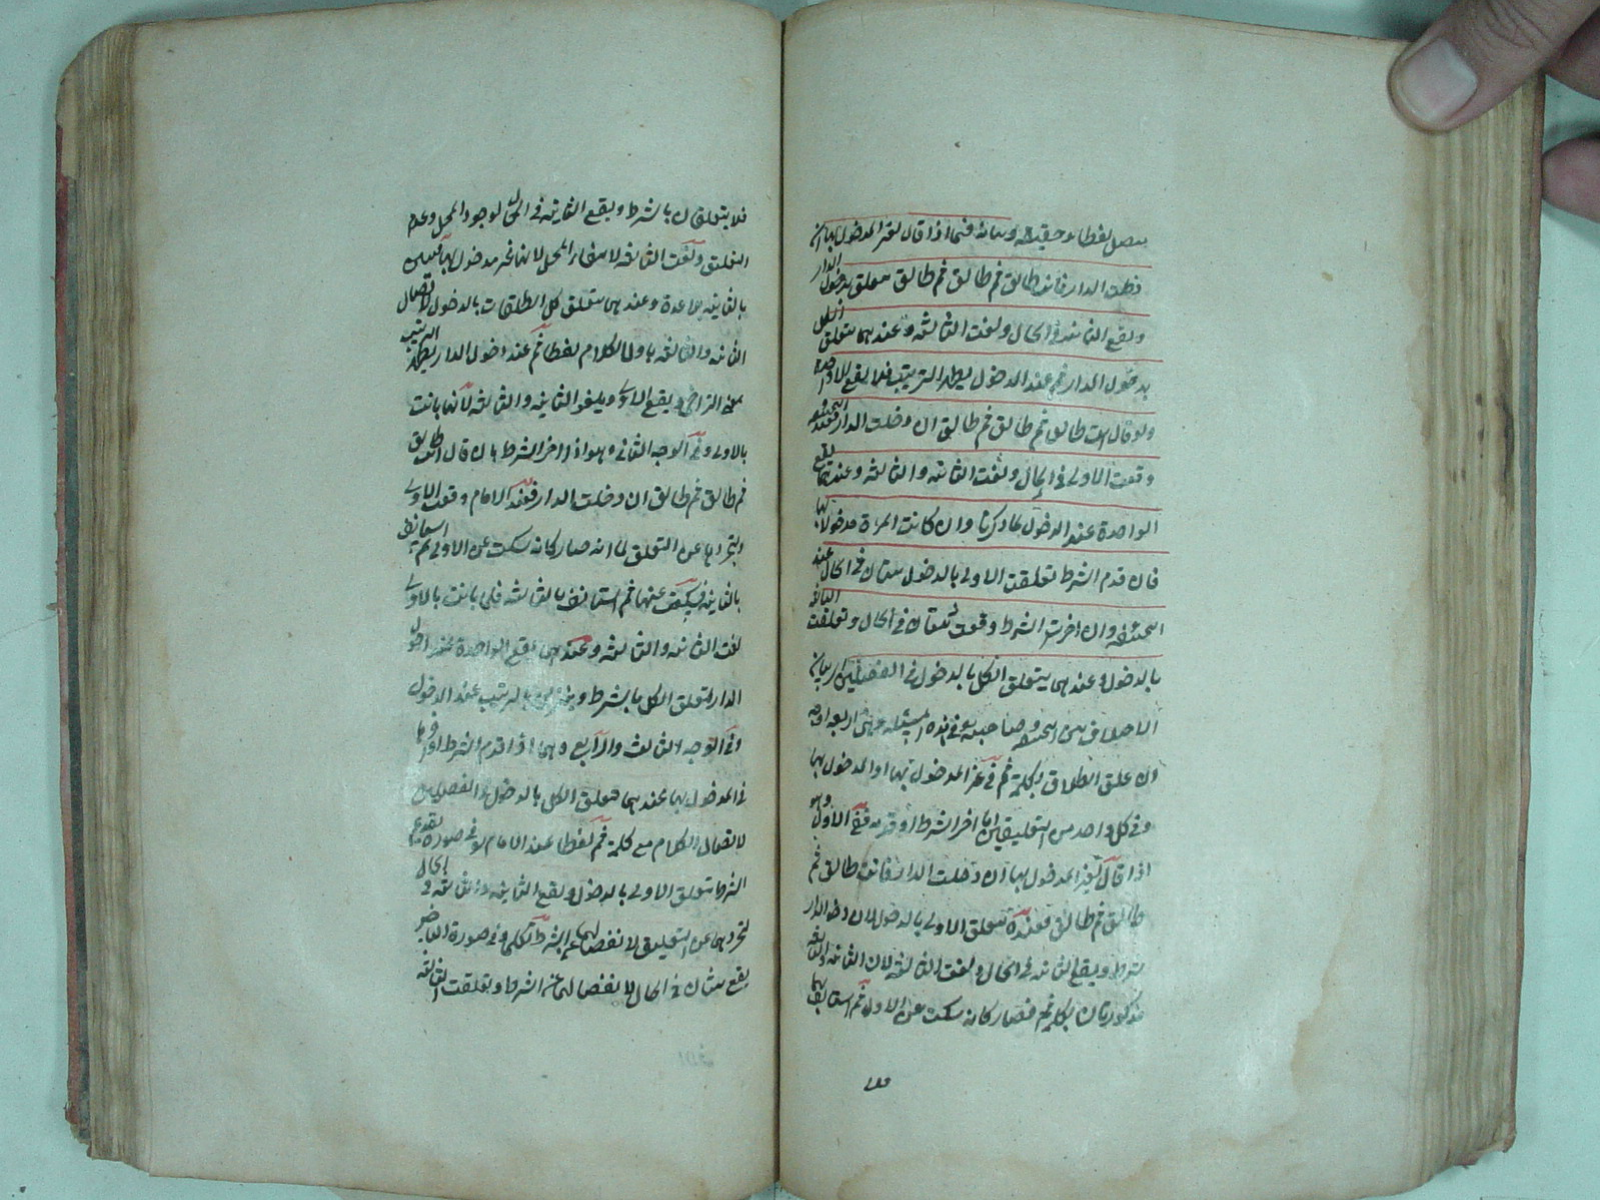 يتصل لفظا وحقيقة وبيانه فيما اذا قال لغير المدخول بها ان
دخلت الدار فانت طالق ثم طالق ثم طالق يتعلق بدخول الدار
ويقع الثانية في الحال ولغت الثالثة وعندهما يتعلق الكل
بدخول الدار ثم عند الدخول يظهر الترتيب فلا يقع الا واحدة
ولو قال انت طالق ثم طالق ثم طالق ان دخلت الدار فعند
وقعت الاولى في الحال ولغت الثانية والثالثة وعندهما يقع
الواحدة عند الدخول لما ذكرنا وان كانت المرءة مدخولا بها
فان قدم الشرط تعلقت الاولى بالدخول ويقع ثنتان في الحال عند
ابي حنيفة وان اخرت الشرط وقعت ثنتان في الحال وتعلقت الثالثة
بالدخول وعندهما يتعلق الكل بالدخول في الفصلين
الاختلاف بين ابي حنيفة وصاحبيه في هذه المسئلة على اربعة اوجه
ان علق الطلاق بكلمة ثم في غير المدخول بها او المدخول بها
وفي كل واحد من التعليقين اما اخر الشرط او قدمه ففي الاول وهو
اذا قال لغير المدخول بها ان دخلت الدار فانت طالق ثم
طالق ثم طالق فعنده يتعلق الاولى بالدخول لان دخول الدار
شرط ويقع الثانية في الحال ولغت الثالثة لان الثانية والثالثة
مذكورتان بكلمة ثم فصار كانه سكت عن الاول ثم استانف بهما
فلا
فلا يتعلقان بالشرط ويقع الثانية في الحال لوجود المحل وعدم
التعليق ولغت الثالثة لانتفاء المحل لانها غير مدخول بها فتبين
بالثانية بلا عدة وعندهما يتعلق كل الطلقات بالدخول لاتصال
الثانية والثالثة باول الكلام لفظا ثم عند دخول الدار يظهر الترتيب
على التراخي ويقع الاولى ويلغو الثانية والثالثة لانها بانت
بالاولى وفي الوجه الثاني وهو اذا اخر الشرط بان قال انت طالق
ثم طالق ثم طالق ان دخلت الدار فعند الامام وقعت الاولى
لتجردها عن التعلق لما انه صار كانه سكت عن الاولى ثم استانف
بالثانية وسكت عنها ثم استانف بالثالثة فلما بانت بالاولى
لغت الثانية والثالثة وعندهما يقع الواحدة عند دخول
الدار لتعلق الكل بالشرط الترتيب عند الدخول
وفي الوجه الثالث والرابع وهما اذا قدم الشرط او اخرها
في المدخول بها عندهما يتعلق الكل بالدخول في الفصلين
لاتصال الكلام مع كلمة ثم لفظا عند الامام في صورة تقديم
الشرط يتعلق الاولى بالدخول ويقع الثانية والثالثة في الحال
لتجردهما عن التعليق لانفصالهما عن الشرط وفي صورة التاخير
يقع ثنتان في الحال لانفصالهما عن الشرط وتعلقت الثالثة